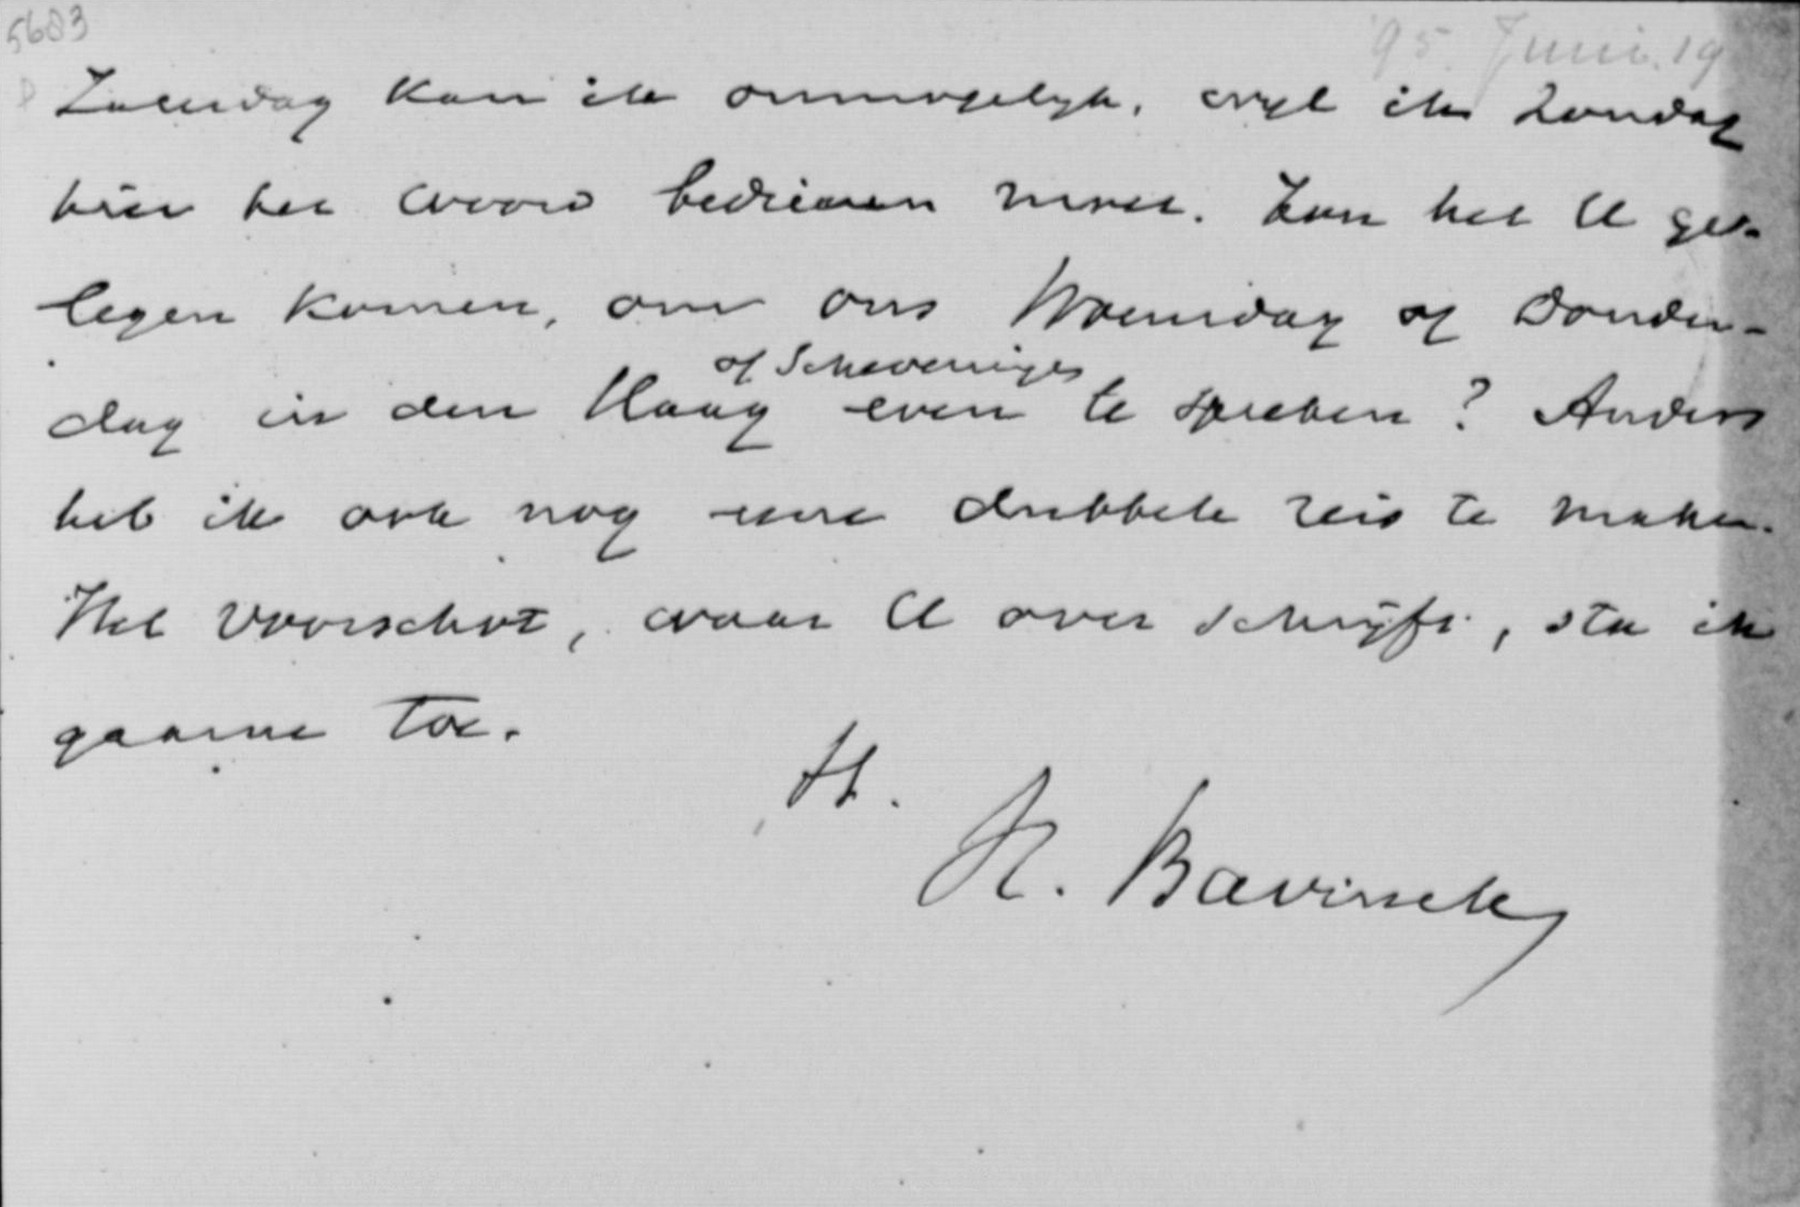 5683
'95. Juni. 19
Zaterdag kan ik onmogelijk, wijl ik Zondag
hier het woord bedienen moet. Zou het U ge-
legen komen, om ons Woensdag of Donder-
of Scheveningen
dag in den Haag even te spreken? Anders
heb ik ook nog eene dubbele reis te maken.
Het voorschot, waar U over schrijft, sta ik
gaarne toe.
tt.
H. Bavinck